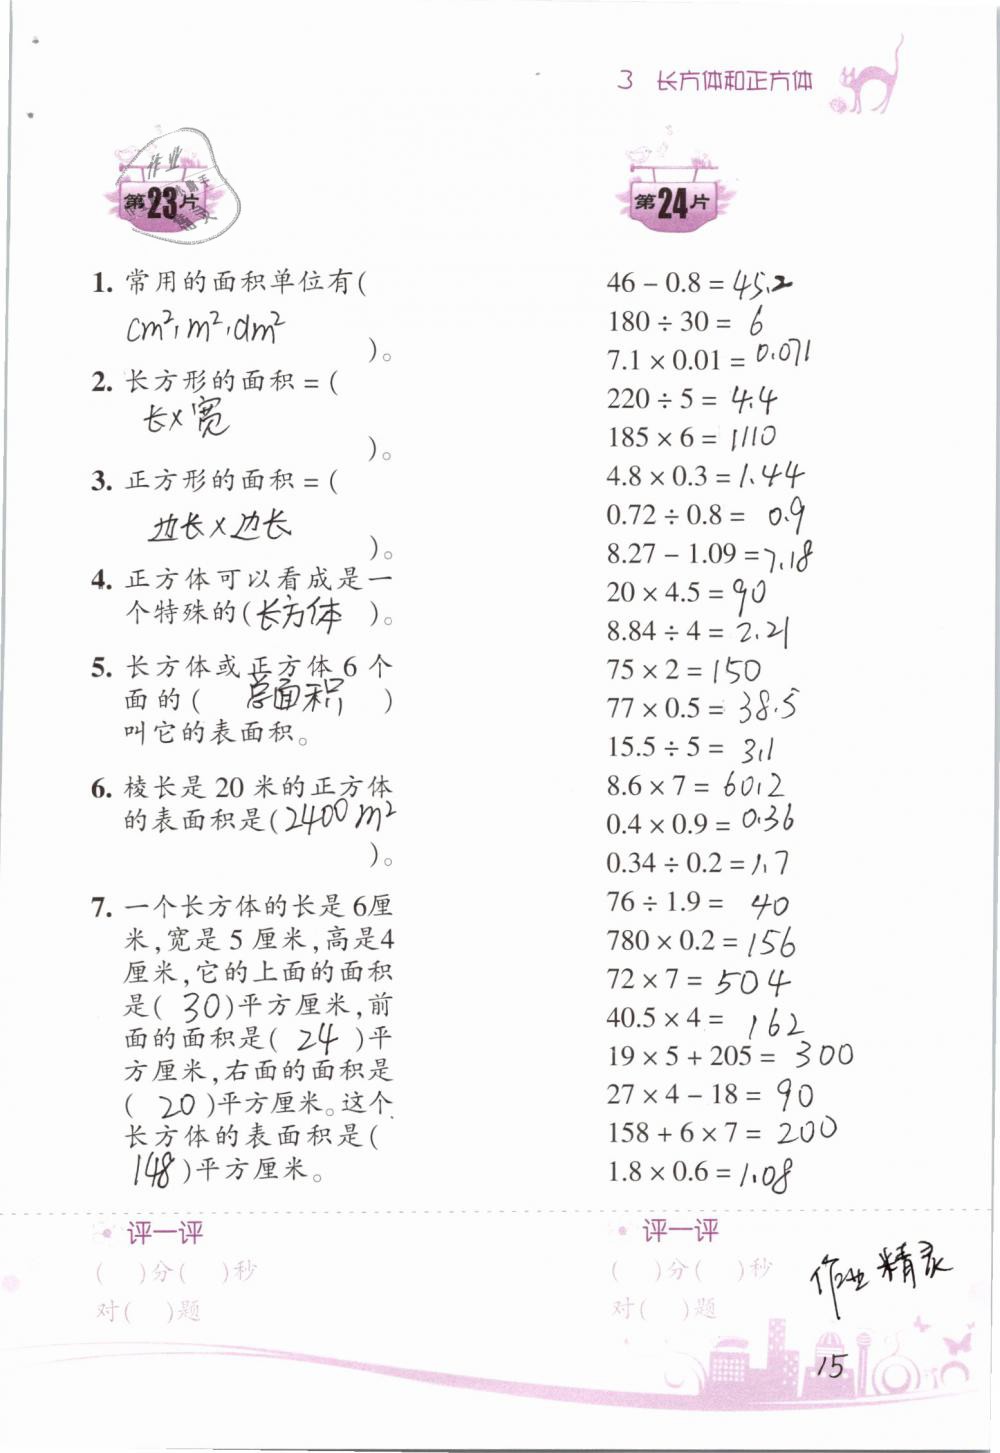 3 长方体和正方体
第23片
1. 常用的面积单位有(
cm², m², dm²
)。
2. 长方形的面积=(
长×宽
)。
3. 正方形的面积=(
边长×边长
)。
4. 正方体可以看成是一
个特殊的(长方体)。
5. 长方体或正方体6个
面的( 总面积 )
叫它的表面积。
6. 棱长是20米的正方体
的表面积是(2400m²
)。
7. 一个长方体的长是6厘
米,宽是5厘米,高是4
厘米,它的上面的面积
是( 30)平方厘米,前
面的面积是( 24 )平
方厘米,右面的面积是
( 20 )平方厘米。这个
长方体的表面积是(
148)平方厘米。
评一评
( )分( )秒
对( )题
第24片
46-0.8=45.2
180÷30=6
7.1×0.01=0.071
220÷5=4.4
185×6=1110
4.8×0.3=1.44
0.72÷0.8=0.9
8.27-1.09=7.18
20×4.5=90
8.84÷4=2.21
75×2=150
77×0.5=38.5
15.5÷5=3.1
8.6×7=60.2
0.4×0.9=0.36
0.34÷0.2=1.7
76÷1.9=40
780×0.2=156
72×7=504
40.5×4=162
19×5+205=300
27×4-18=90
158+6×7=200
1.8×0.6=1.08
评一评
( )分( )秒
对( )题
作业精灵
15